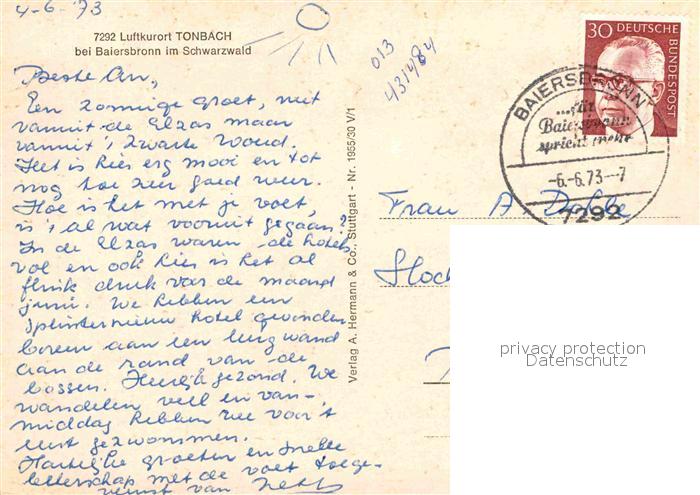 4-6-'73
7292 Luftkurort TONBACH
bei Baiersbronn im Schwarzwald
013
431484
Beste An,
Een zonnige groet, niet
vanuit de Elzas maar
vanuit 't zwarte woud.
Het is hier erg mooi en tot
nog toe zeer goed weer.
Hoe is het met je voet,
is 't al wat vooruit gegaan?
In de Elzas waren de hotels
vol en ook hier is het al
flink druk voor de maand
juni. We hebben een
splinternieuw hotel gevonden
boven aan een berg wand
aan de rand van de
bossen. Heerlijk gezond. We
wandelen veel en van-
middag hebben we voor 't
eerst gezwommen.
Hartelijke groeten en snelle
beterschap met de voet toege-
wenst van
Verlag A. Hermann & Co., Stuttgart - Nr. 1955/30 V/1
30 DEUTSCHE
BUNDESPOST
BAIERSBRONN 1
...für
Baiersbronn
spricht mehr
-6.-6.73--7
7292
Frau A
privacy protection
Datenschutz